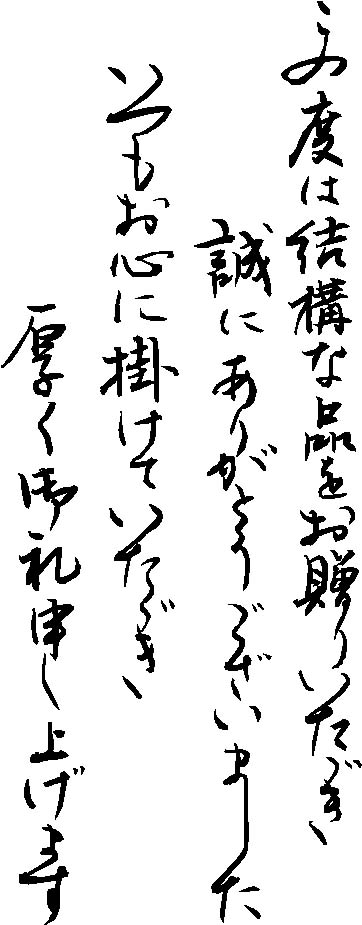 この度は結構な品をお贈りいただき
誠にありがとうございました
いつもお心に掛けていただき
厚く御礼申し上げます